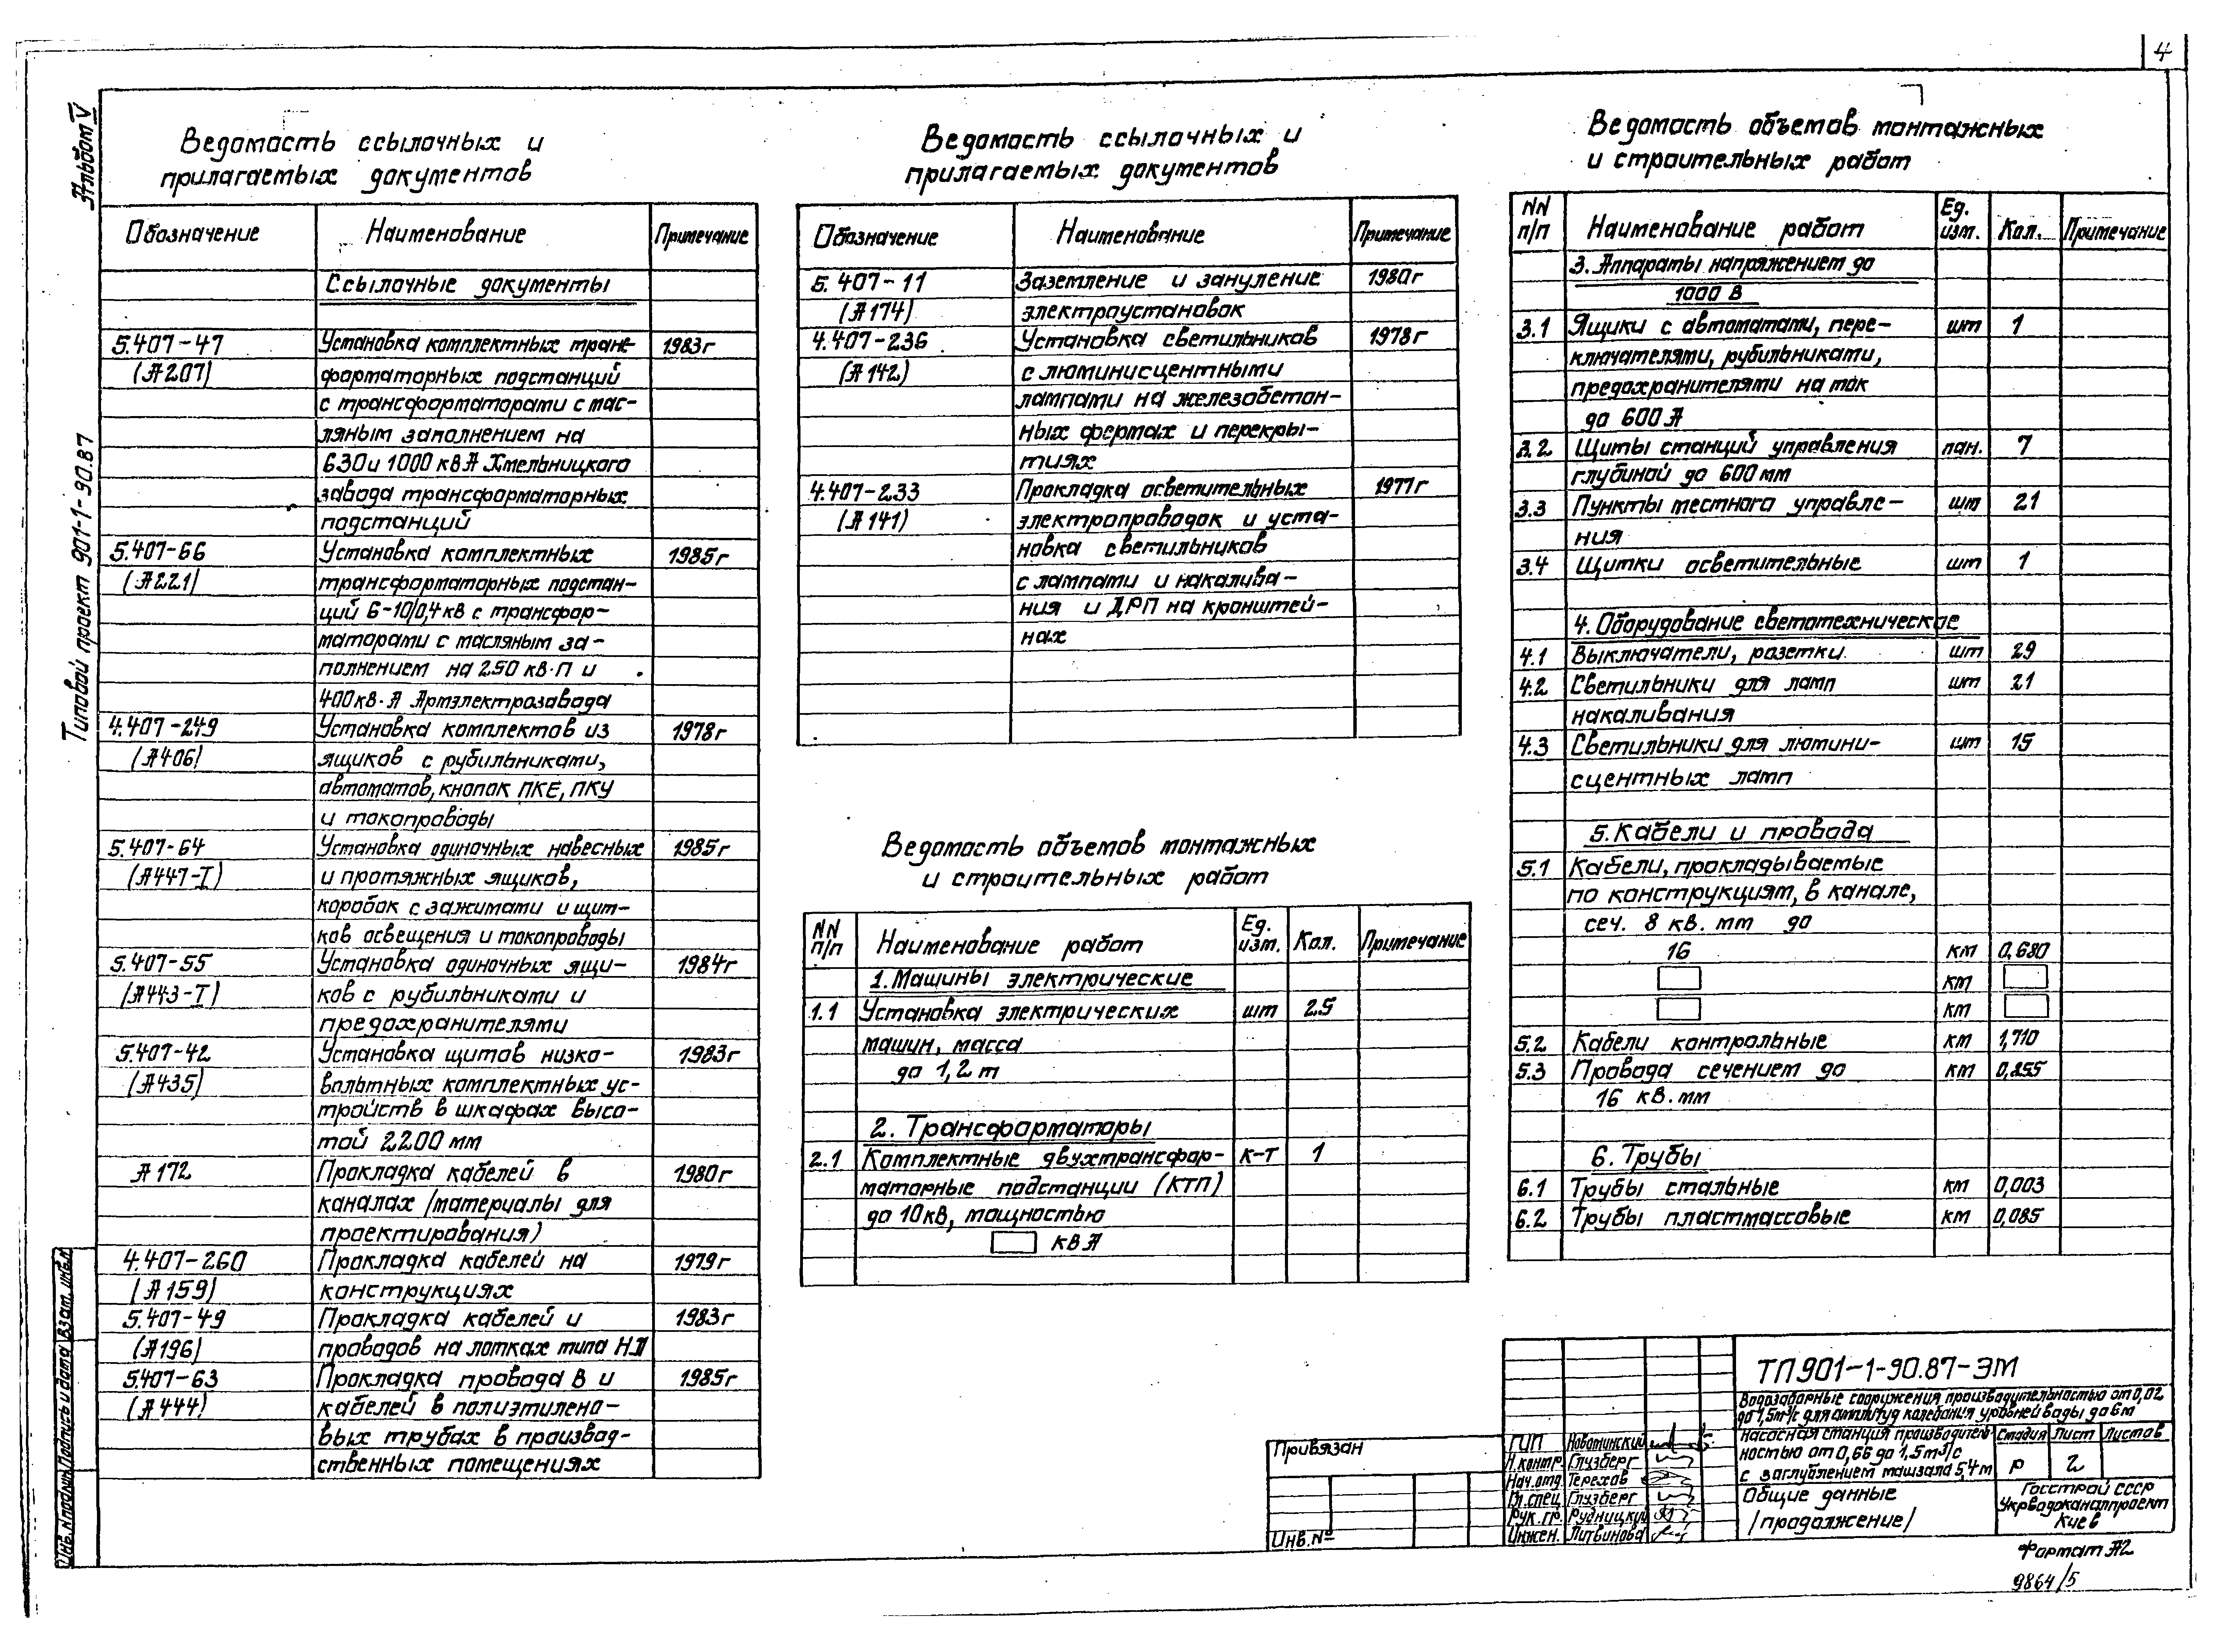 4
Альбом V
Типовой проект 901-1-90.87
Ведомость ссылочных и
прилагаемых документов
Обозначение Наименование Примечание
Ссылочные документы
5.407-47 Установка комплектных транс- 1983г
(А207) форматорных подстанций
с трансформаторами с мас-
ляным заполнением на
630 и 1000 кВА Хмельницкого
завода трансформаторных
подстанций
5.407-66 Установка комплектных 1985г
(А221) трансформаторных подстан-
ций 6-10/0,4 кВ с трансфор-
маторами с масляным за-
полнением на 250 кВ·А и
400 кВ·А Армэлектрозавода
4.407-249 Установка комплектов из 1978г
(А406) ящиков с рубильниками,
автоматов, кнопок ПКЕ, ПКУ
и токопроводы
5.407-64 Установка одиночных навесных 1985г
(А447-I) и протяжных ящиков,
коробок с зажимами и щит-
ков освещения и токопроводы
5.407-55 Установка одиночных ящи- 1984г
(А443-I) ков с рубильниками и
предохранителями
5.407-42 Установка щитов низко- 1983г
(А435) вольтных комплектных ус-
тройств в шкафах высо-
той 2200 мм
А172 Прокладка кабелей в 1980г
каналах (материалы для
проектирования)
4.407-260 Прокладка кабелей на 1979г
(А159) конструкциях
5.407-49 Прокладка кабелей и 1983г
(А196) проводов на лотках типа НЛ
5.407-63 Прокладка провода В и 1985г
(А444) кабелей в полиэтилено-
вых трубах в производ-
ственных помещениях
Ведомость ссылочных и
прилагаемых документов
Обозначение Наименование Примечание
5.407-11 Заземление и зануление 1980г
(А174) электроустановок
4.407-236 Установка светильников 1978г
(А142) с люминисцентными
лампами на железобетон-
ных фермах и перекры-
тиях
4.407-233 Прокладка осветительных 1977г
(А141) электропроводок и уста-
новка светильников
с лампами и накалива-
ния и ДРЛ на кронштей-
нах
Ведомость объемов монтажных
и строительных работ
NN п/п Наименование работ Ед. изм. Кол. Примечание
1. Машины электрические
1.1 Установка электрических шт 25
машин, масса
до 1,2 т
2. Трансформаторы
2.1 Комплектные двухтрансфор- к-т 1
маторные подстанции (КТП)
до 10кВ, мощностью
кВА
Ведомость объемов монтажных
и строительных работ
NN п/п Наименование работ Ед. изм. Кол. Примечание
3. Аппараты напряжением до
1000 В
3.1 Ящики с автоматами, пере- шт 1
ключателями, рубильниками,
предохранителями на ток
до 600 А
3.2 Щиты станций управления пан. 7
глубиной до 600 мм
3.3 Пункты местного управле- шт 21
ния
3.4 Щитки осветительные шт 1
4. Оборудование светотехническое
4.1 Выключатели, розетки шт 29
4.2 Светильники для ламп шт 21
накаливания
4.3 Светильники для люмини- шт 15
сцентных ламп
5. Кабели и провода
5.1 Кабели, прокладываемые
по конструкциям, в канале,
сеч. 8 кв. мм до
16 км 0,680
км
км
5.2 Кабели контрольные км 1,710
5.3 Провода сечением до км
16 кв. мм
6. Трубы
6.1 Трубы стальные км 0,003
6.2 Трубы пластмассовые км 0,085
Привязан
Инв. №
ГИП Новоминский
Н.контр. Глузберг
Нач.отд. Терехов
Гл.спец. Глузберг
Рук. гр. Рудницкий
Инжен. Литвинова
ТП 901-1-90.87-ЭМ
Водозаборные сооружения производительностью от 0,02
до 1,5м³/с для амплитуд колебания уровней воды до 6м
Насосная станция производитель-
ностью от 0,66 до 1,5м³/с
с заглублением машзала 5,4м
Стадия Лист Листов
Р 2
Общие данные
/продолжение/
Госстрой СССР
Укрводоканалпроект
Киев
Формат А2
9864/5
Инв. N подлин. Подпись и дата Взам. инв. №